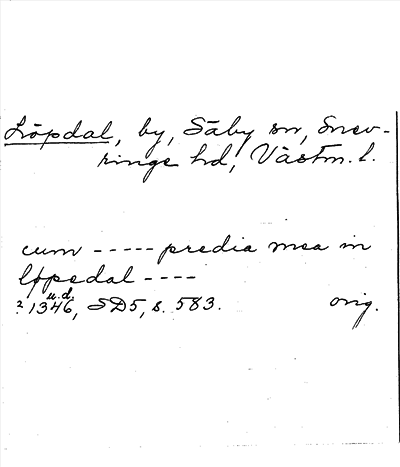 Löpdal, by, Säby sn, Snev-
ringe hd, Västm. l.
cum ----- predia mea in
løpedal ----
u.d.
? 1346, SD5, s. 583. orig.